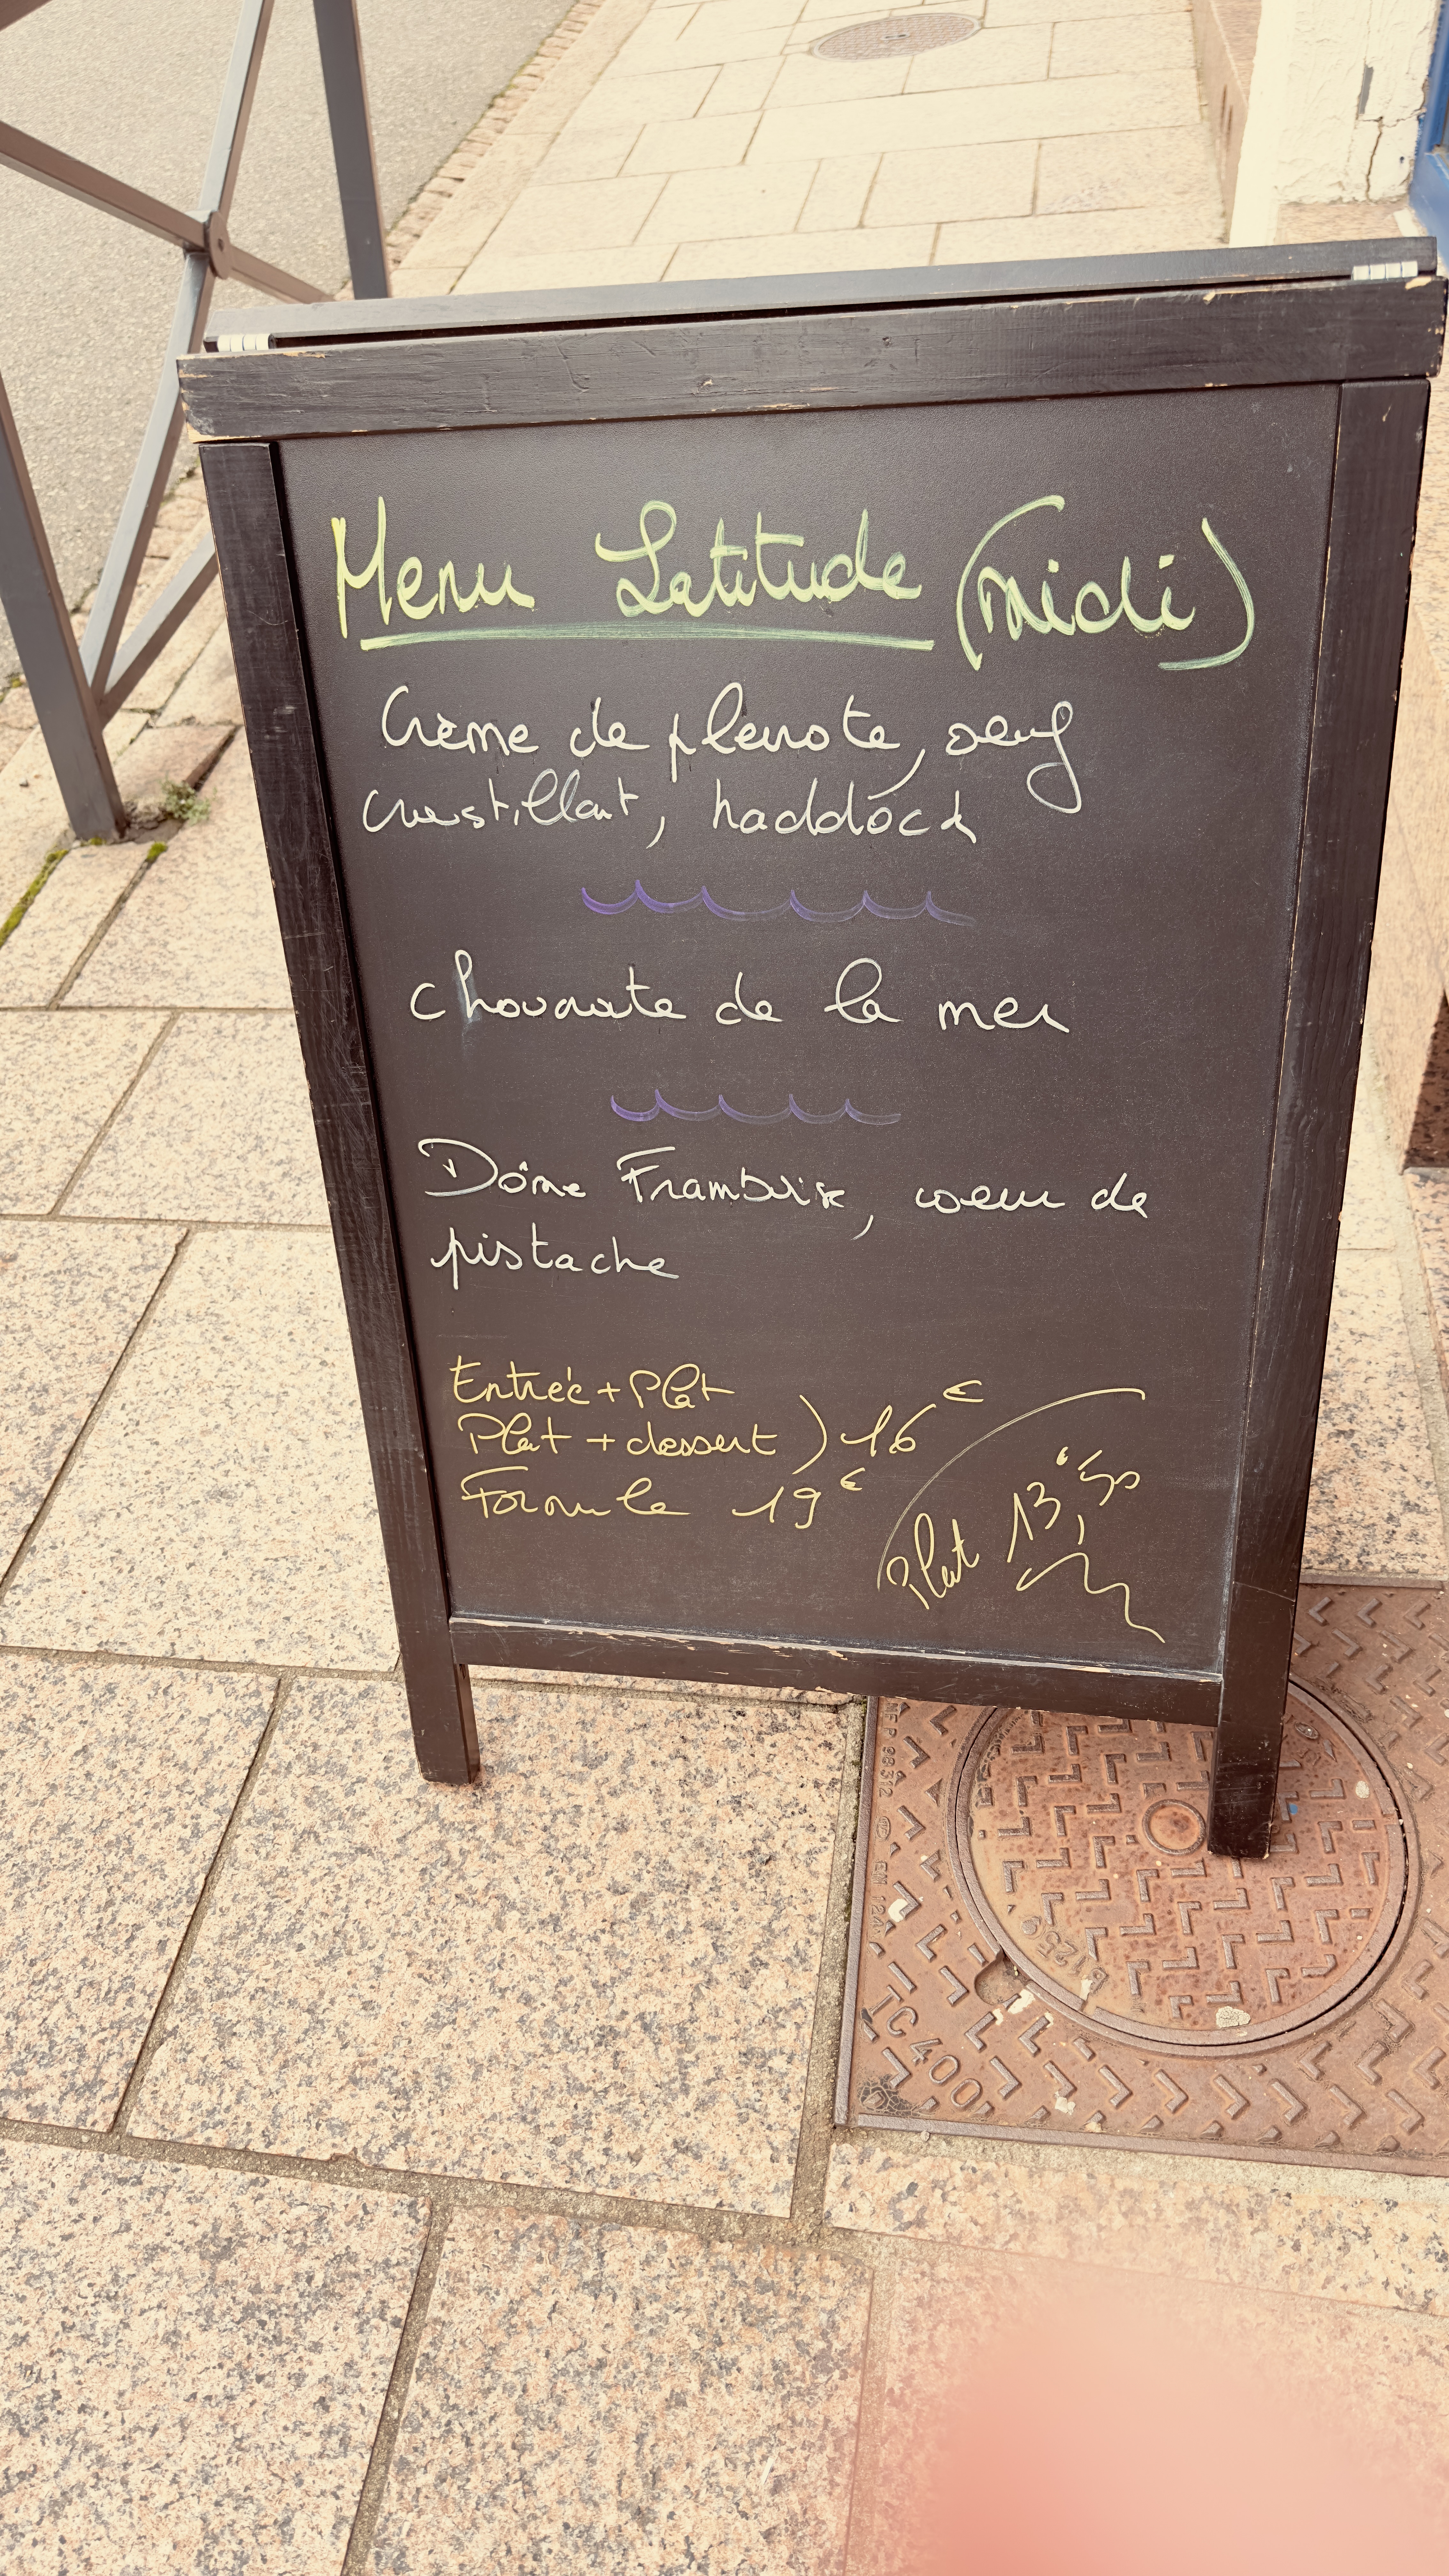 Menu Latitude (midi)
Crème de pleurote, oeuf
croustillant, haddock
choucroute de la mer
Dôme Framboise, coeur de
pistache
Entrée + Plat
Plat + dessert ) 16€
Formule 19€
Plat 13,€50
TC 400